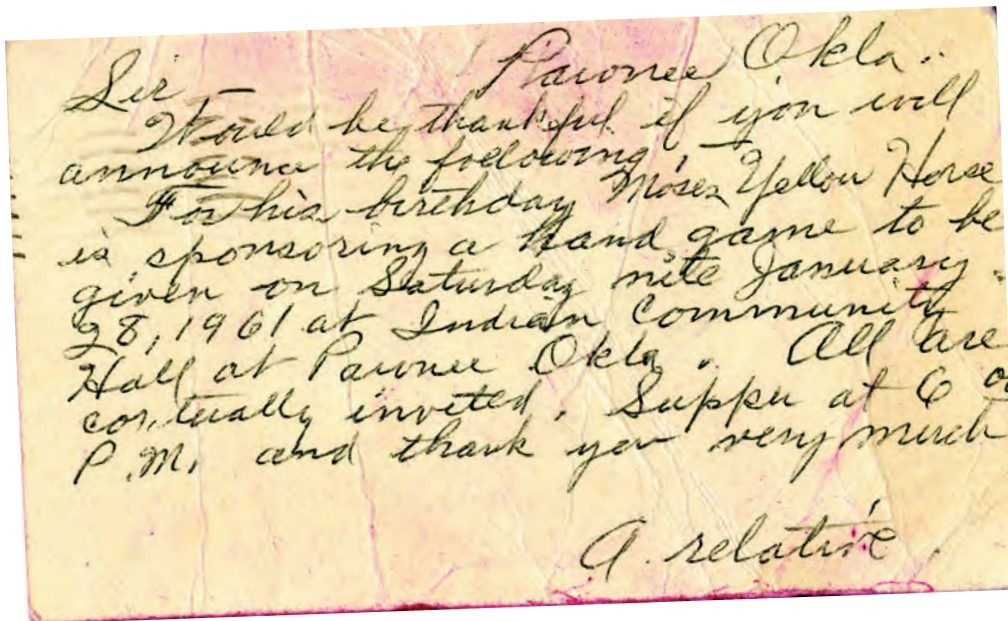 Pawnee Okla.
Sir —
Would be thankful if you will
announce the following,
For his birthday Moses Yellow Horse
is sponsoring a hand game to be
given on Saturday nite January
28, 1961 at Indian Community
Hall at Pawnee Okla. All are
cortually invited. Supper at 6 00
P.M. and thank you very much
A. relative